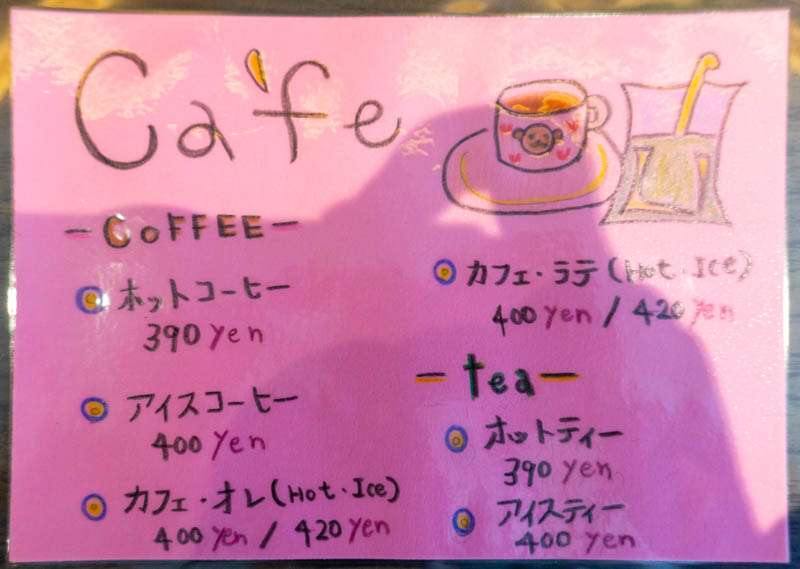 Ca'fe
- COFFEE -
ホットコーヒー
390 yen
アイスコーヒー
400 yen
カフェ・オレ (Hot・Ice)
400 yen / 420 yen
カフェ・ラテ (Hot・Ice)
400 yen / 420 yen
- tea -
ホットティー
390 yen
アイスティー
400 yen